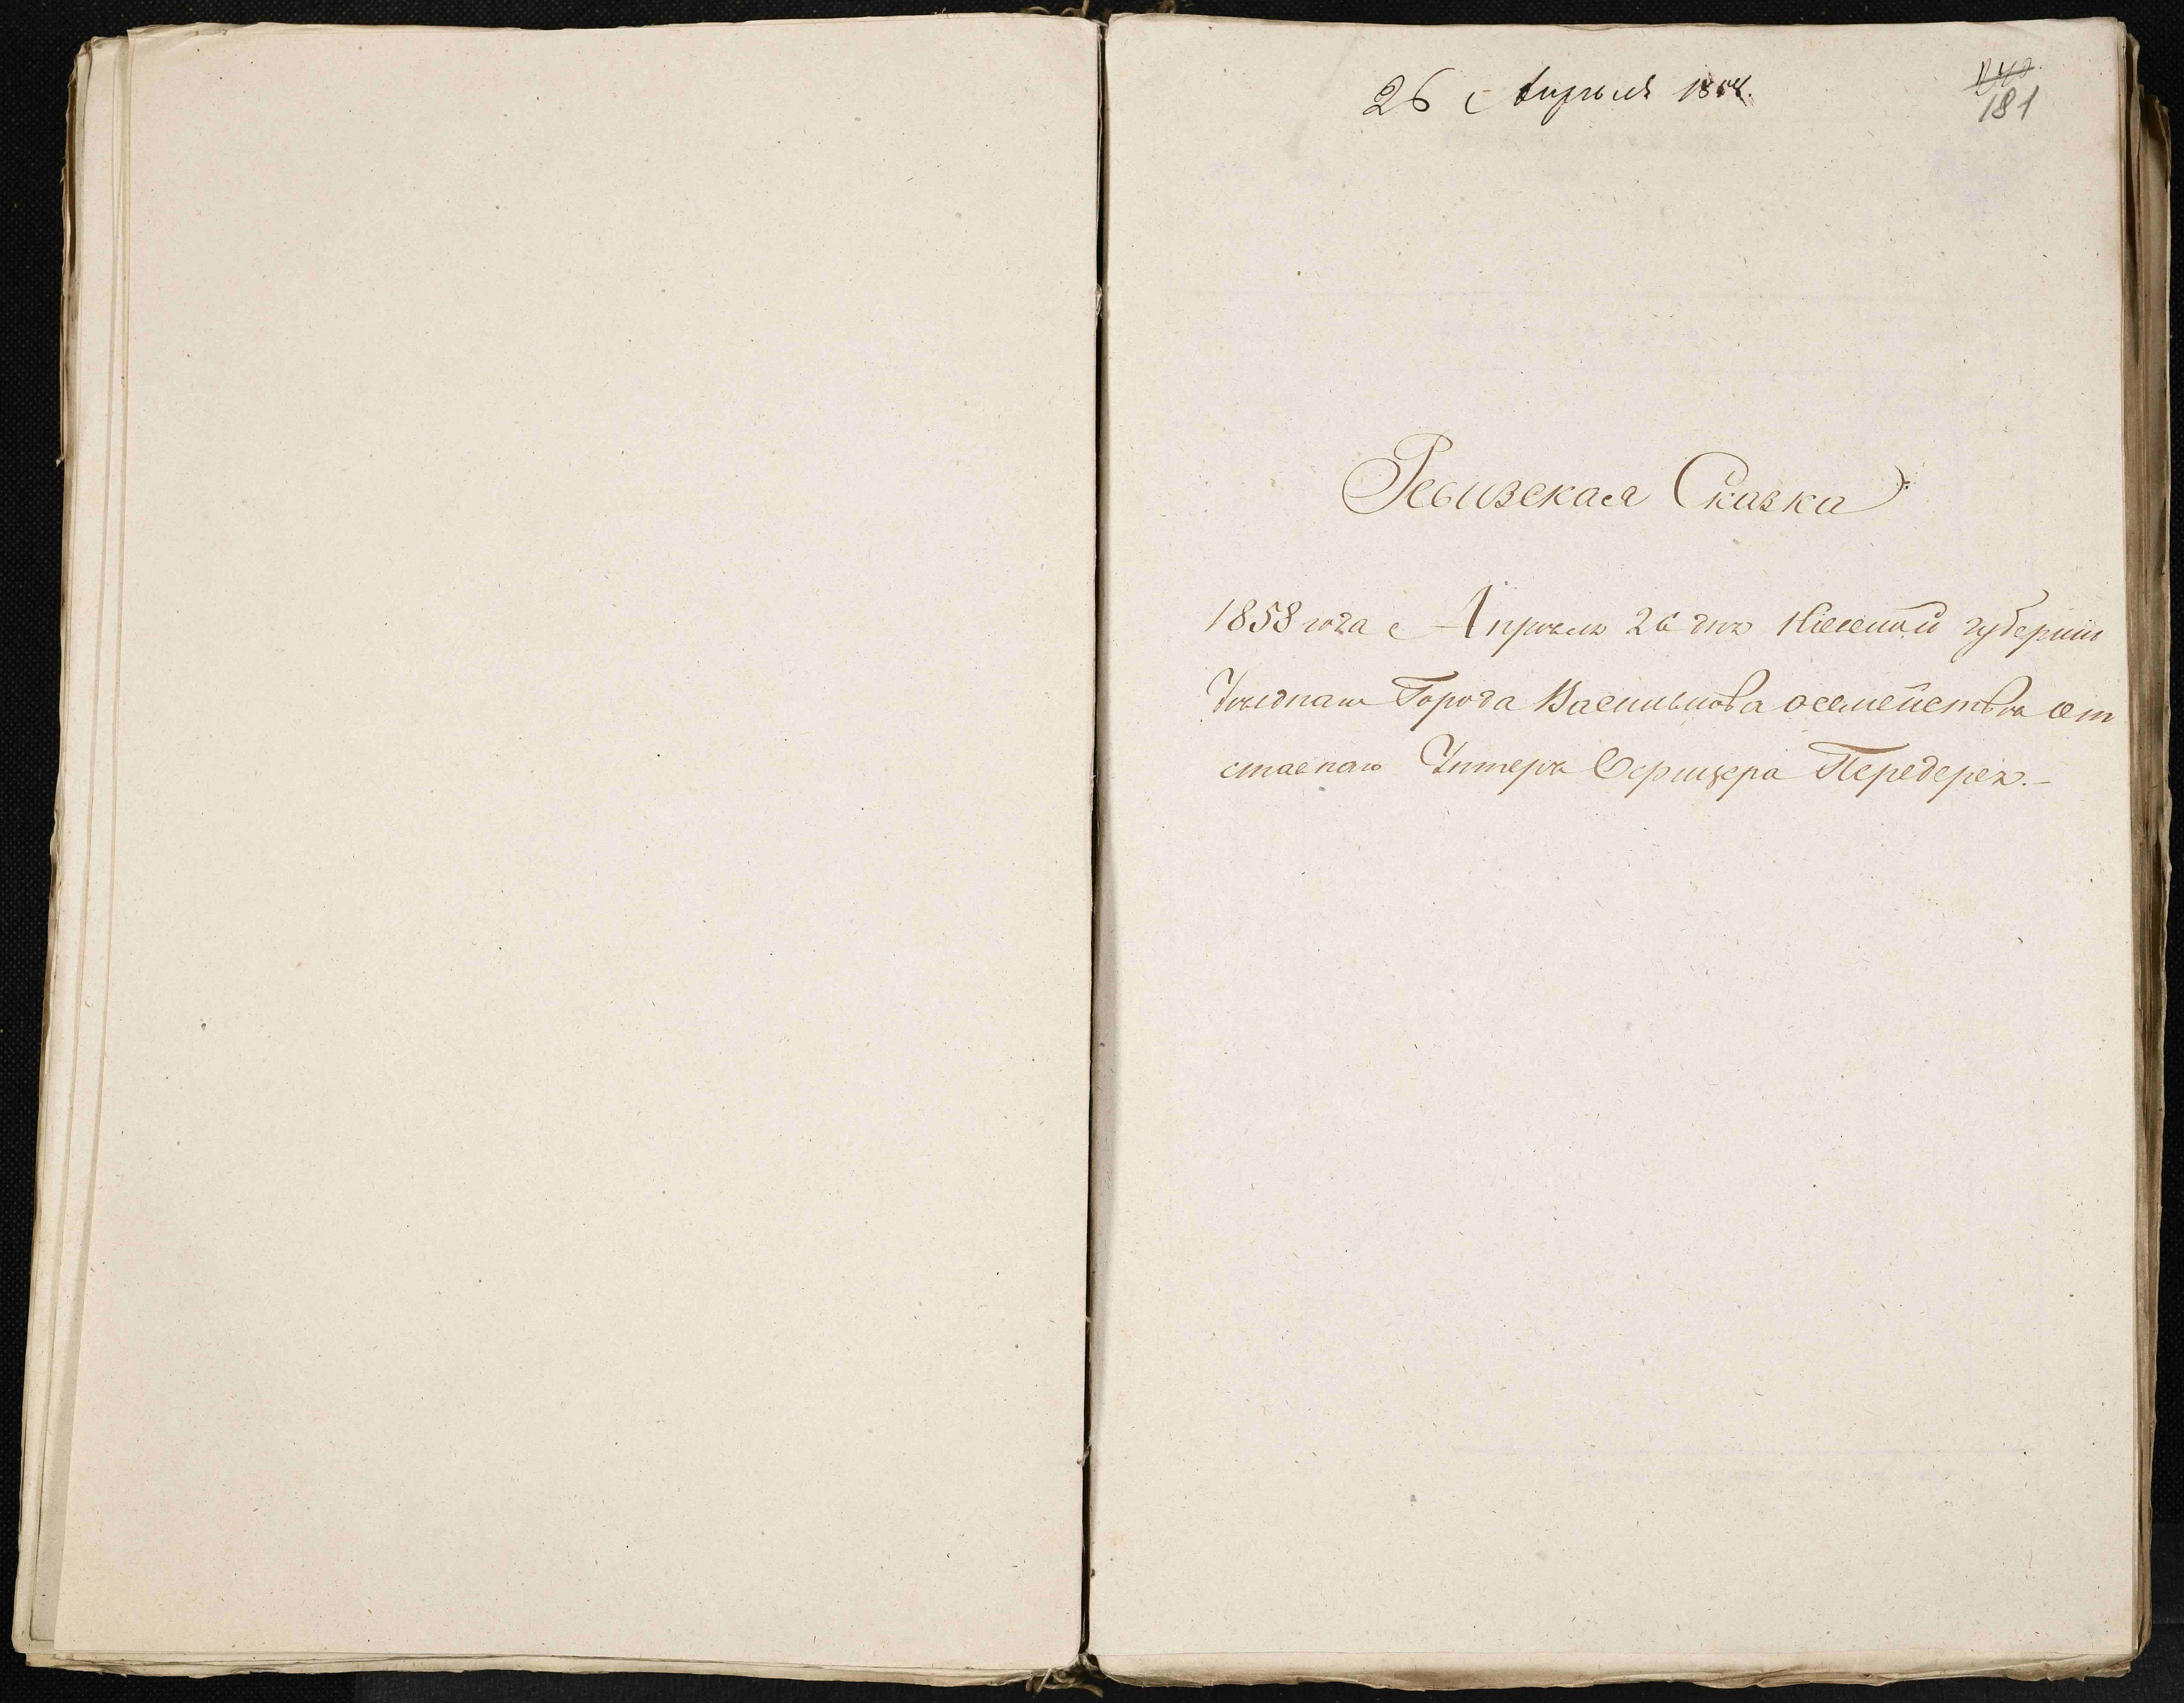 26 Апрѣля 1858.
240
181
Ревизская Сказка
1858 года Апрѣля 26 дня Кіевской губерніи
Уѣзднаго Города Василькова осемействѣ От
ставнаго Унтеръ Офицера Передерея.-